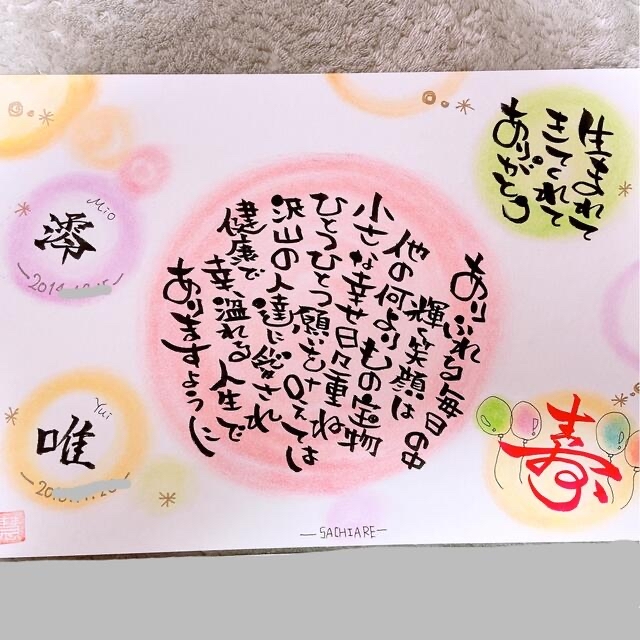 生まれて
きてくれて
ありがとう
ありふれる毎日の中
輝く笑顔は
他の何よりもの宝物
小さな幸せ日々重ね
ひとつひとつ願いを叶えては
沢山の人達に愛され
健康で幸溢れる人生で
ありますように
寿
Mio
澪
Yui
唯
—SACHIARE—